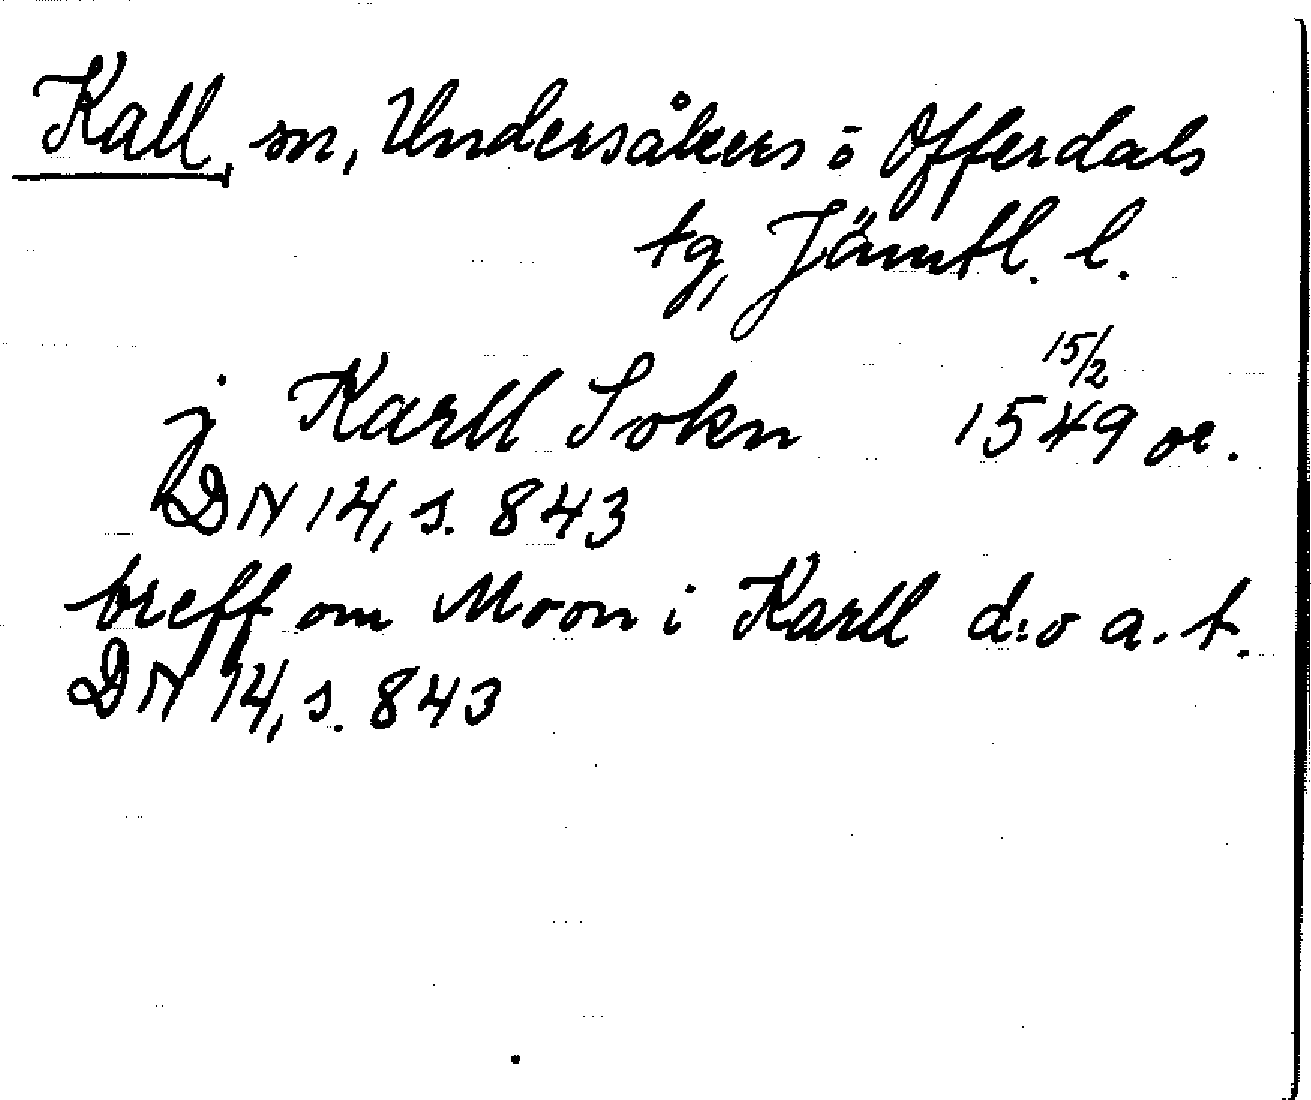 Kall, sn, Undersåkers o Offerdals
tg, Jämtl. l.
j Karll Sokn 15/2 1549 or.
DN 14, s. 843
breff om Moon i Karll d:o a. t.
DN 14, s. 843